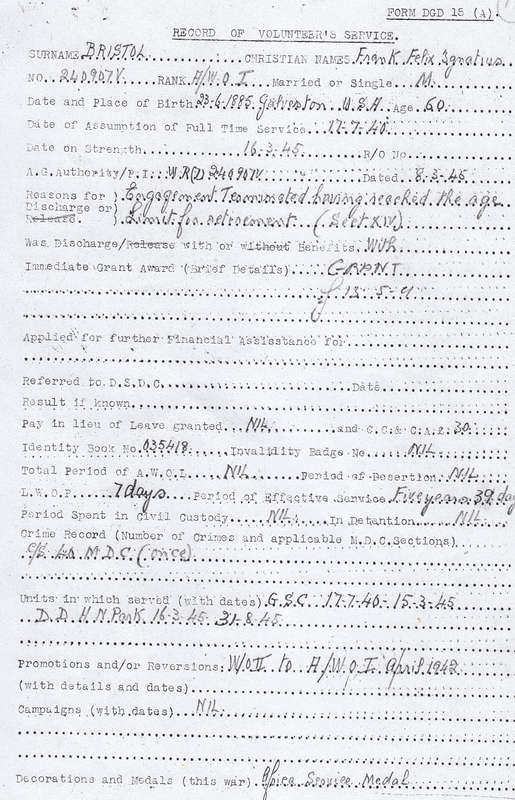 FORM DGD 15 (A).
RECORD OF VOLUNTEER'S SERVICE.
SURNAME BRISTOL CHRISTIAN NAMES Frank Felix Ignatius
NO. 240907V RANK A/W.O.I Married or Single M
Date and Place of Birth 23-6-1885. Galveston U.S.A Age 60
Date of Assumption of Full Time Service 17-7-40
Date on Strength 16-3-45 R/O No
A.G. Authority/P.I: W.R(D) 240907V Dated 8-3-45
Reasons for ) Engagement Terminated having reached the age
Discharge or)
Release. ) Limit for retirement (Sect XIV)
Was Discharge/Release with or without Benefits With
Immediate Grant Award (Brief Details)
£ 13-5-9
Applied for further Financial Assistance for
Referred to D.S.D.C. Date
Result if known
Pay in lieu of Leave granted NIL and C.C.& C.A.R. 30
Identity Book No. 035418 Invalidity Badge No NIL
Total Period of A.W.O.L NIL Period of Desertion NIL
L.W.O.P. 7 days Period of Effective Service Five years 39 day
Period Spent in Civil Custody NIL In Detention NIL
Crime Record (Number of Crimes and applicable M.D.C. Sections)
C/S 40 M.D.C. (once)
Units in which served (with dates) G.S.C. 17-7-40 - 15-3-45
D.D. H N Park 16-3-45 31-8-45
Promotions and/or Reversions: W.O.II to A/W.O.I April 1942
(with details and dates)
Campaigns (with dates) NIL
Decorations and Medals (this war) Africa Service Medal